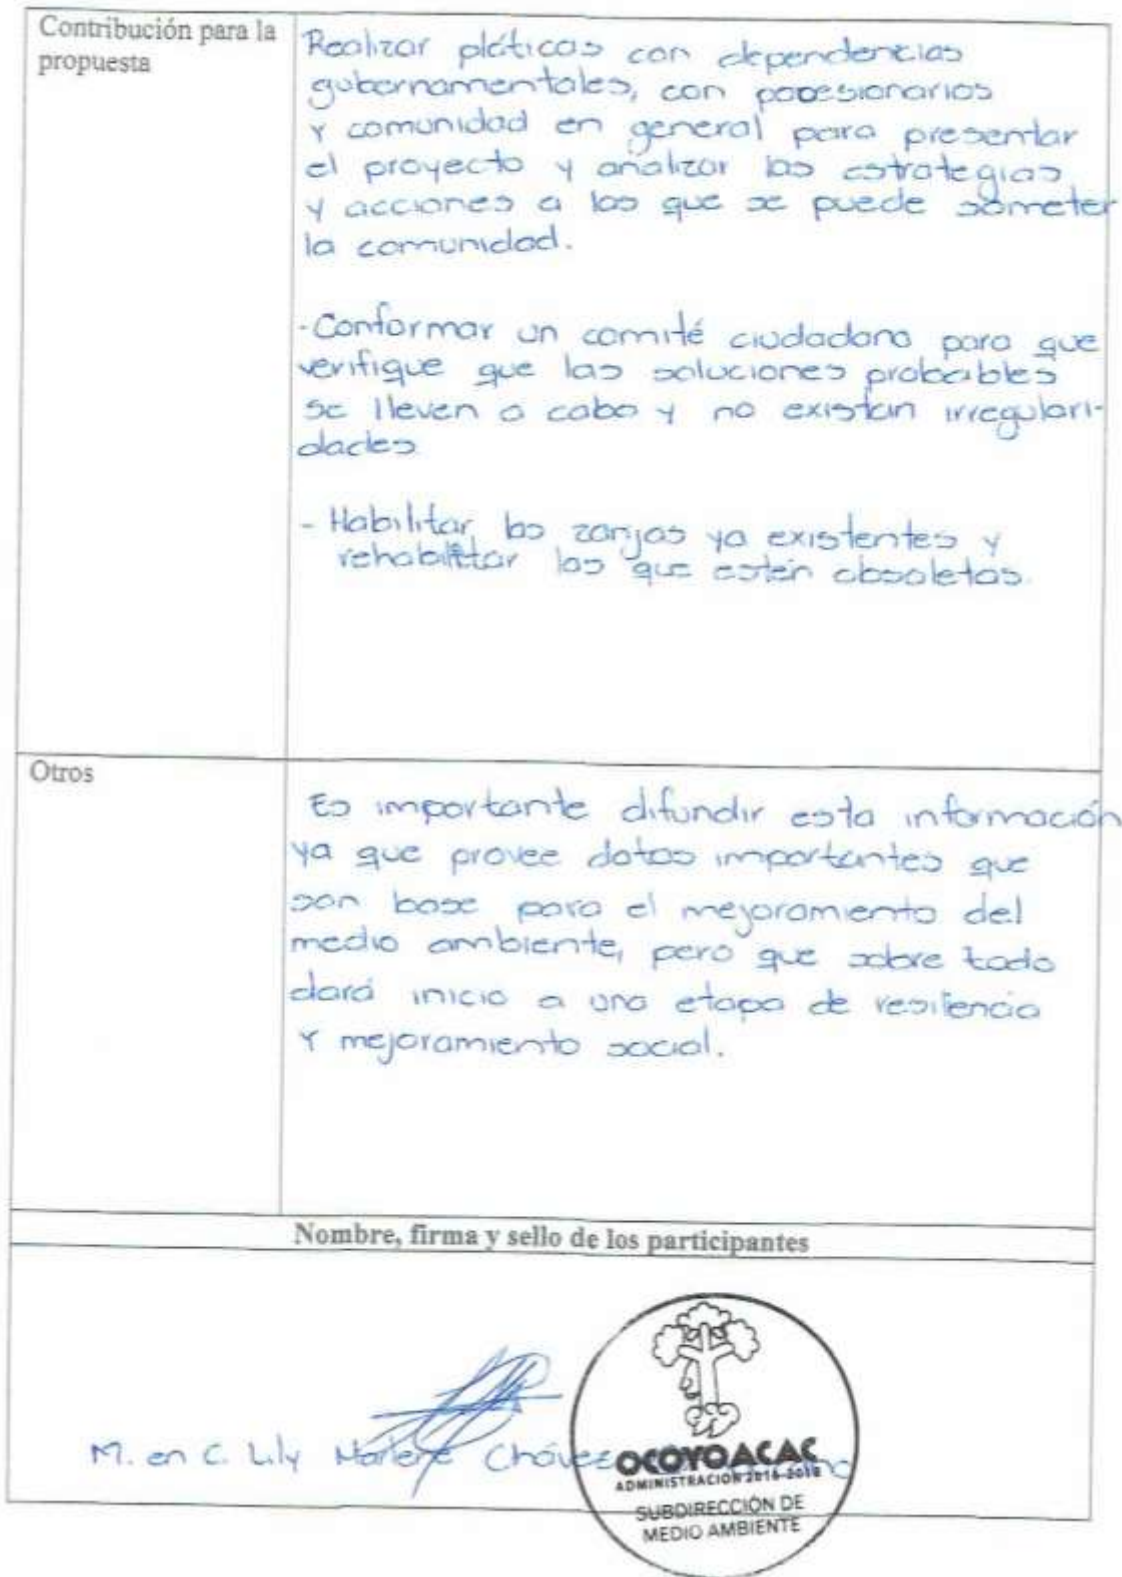 Contribución para la
propuesta
Realizar pláticas con dependencias
gubernamentales, con pocesionarios
y comunidad en general para presentar
el proyecto y analizar las estrategias
y acciones a las que se puede someter
la comunidad.
- Conformar un comité ciudadano para que
verifique que las soluciones probables
se lleven a cabo y no existan irregulari-
dades
- Habilitar las zanjas ya existentes y
rehabilitar las que estén obsoletas.
Otros
Es importante difundir esta información
ya que provee datos importantes que
son base para el mejoramiento del
medio ambiente, pero que sobre todo
dará inicio a una etapa de resiliencia
y mejoramiento social.
Nombre, firma y sello de los participantes
M. en C. Lily Marlene Chávez
OCOYOACAC
ADMINISTRACIÓN 2016-2018
SUBDIRECCIÓN DE
MEDIO AMBIENTE